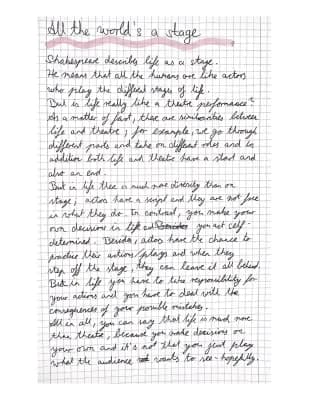 All the world's a stage
Shakespeare describes life as a stage.
He means that all the humans are like actors
who play the different stages of life.
But is life really like a theatre performance?
As a matter of fact, there are similarities between
life and theatre, for example, we go through
different parts and take on different roles and in
addition both life and theatre have a start and
also an end.
But in life there is much more diversity than on
stage, actors have a script and they are not free
in what they do. In contrast, you make your
own decisions in life and you act self-
determined. Besides, actors have the chance to
practice their actions/plays and when they
step off the stage, they can leave it all behind.
But in life you have to take responsibility for
your actions and you have to deal with the
consequences of your possible mistakes.
All in all, you can say that life is much more
than theatre, because you make decisions on
your own and it's not that you just play
what the audience wants to see - hopefully.